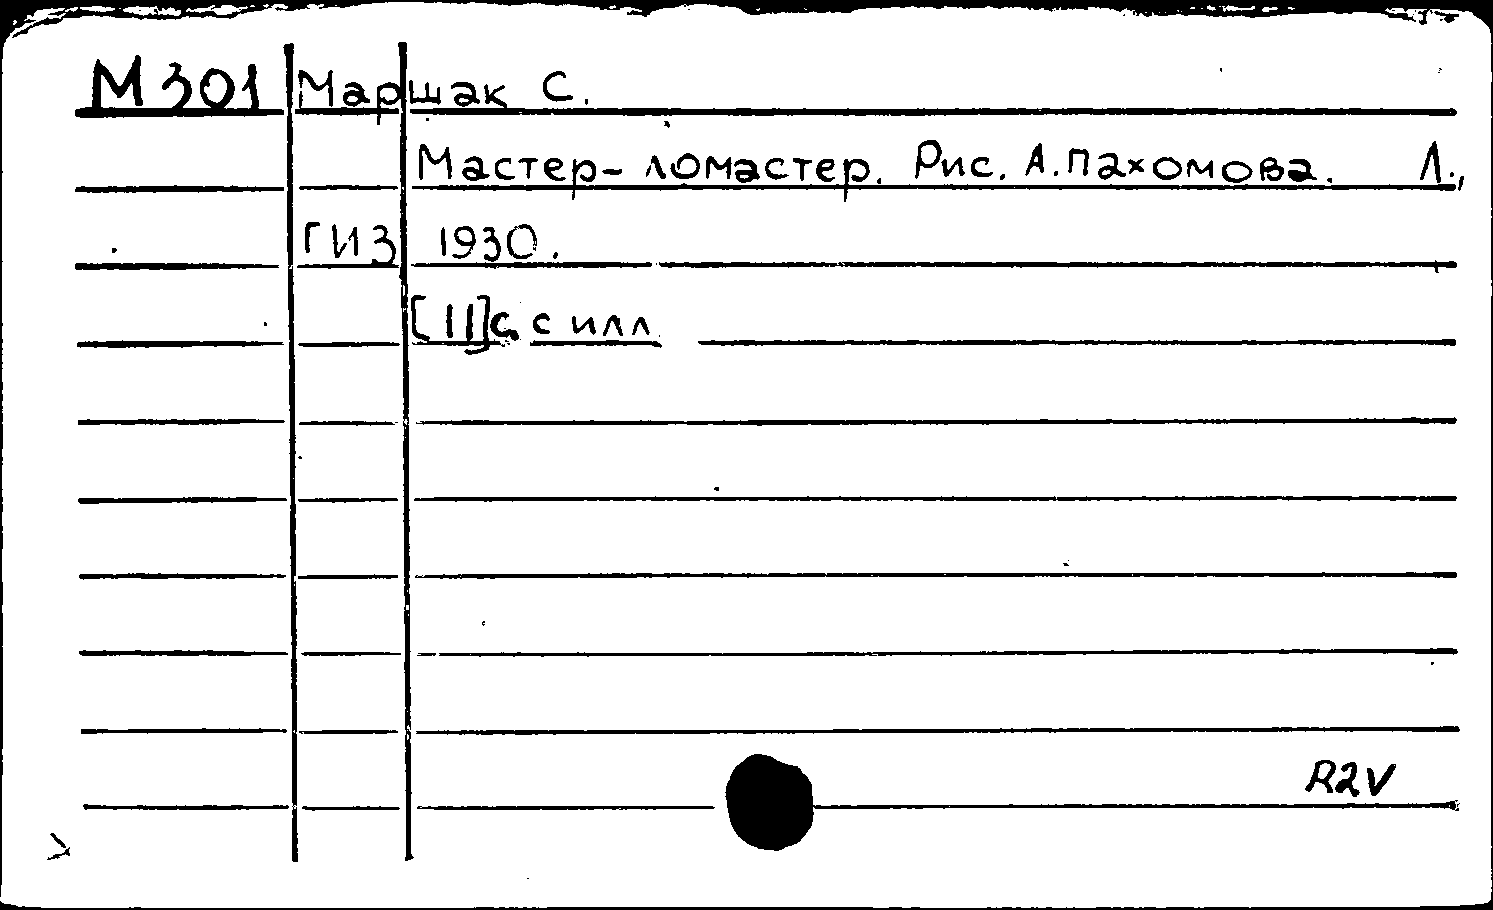 М301 Маршак С.
Мастер-ломастер. Рис. А.Пахомова. Л.,
ГИЗ 1930.
[11]с. с илл
R2V